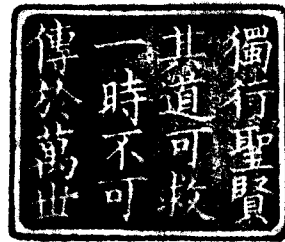 獨行聖賢
其道可救
一時不可
傳於萬世